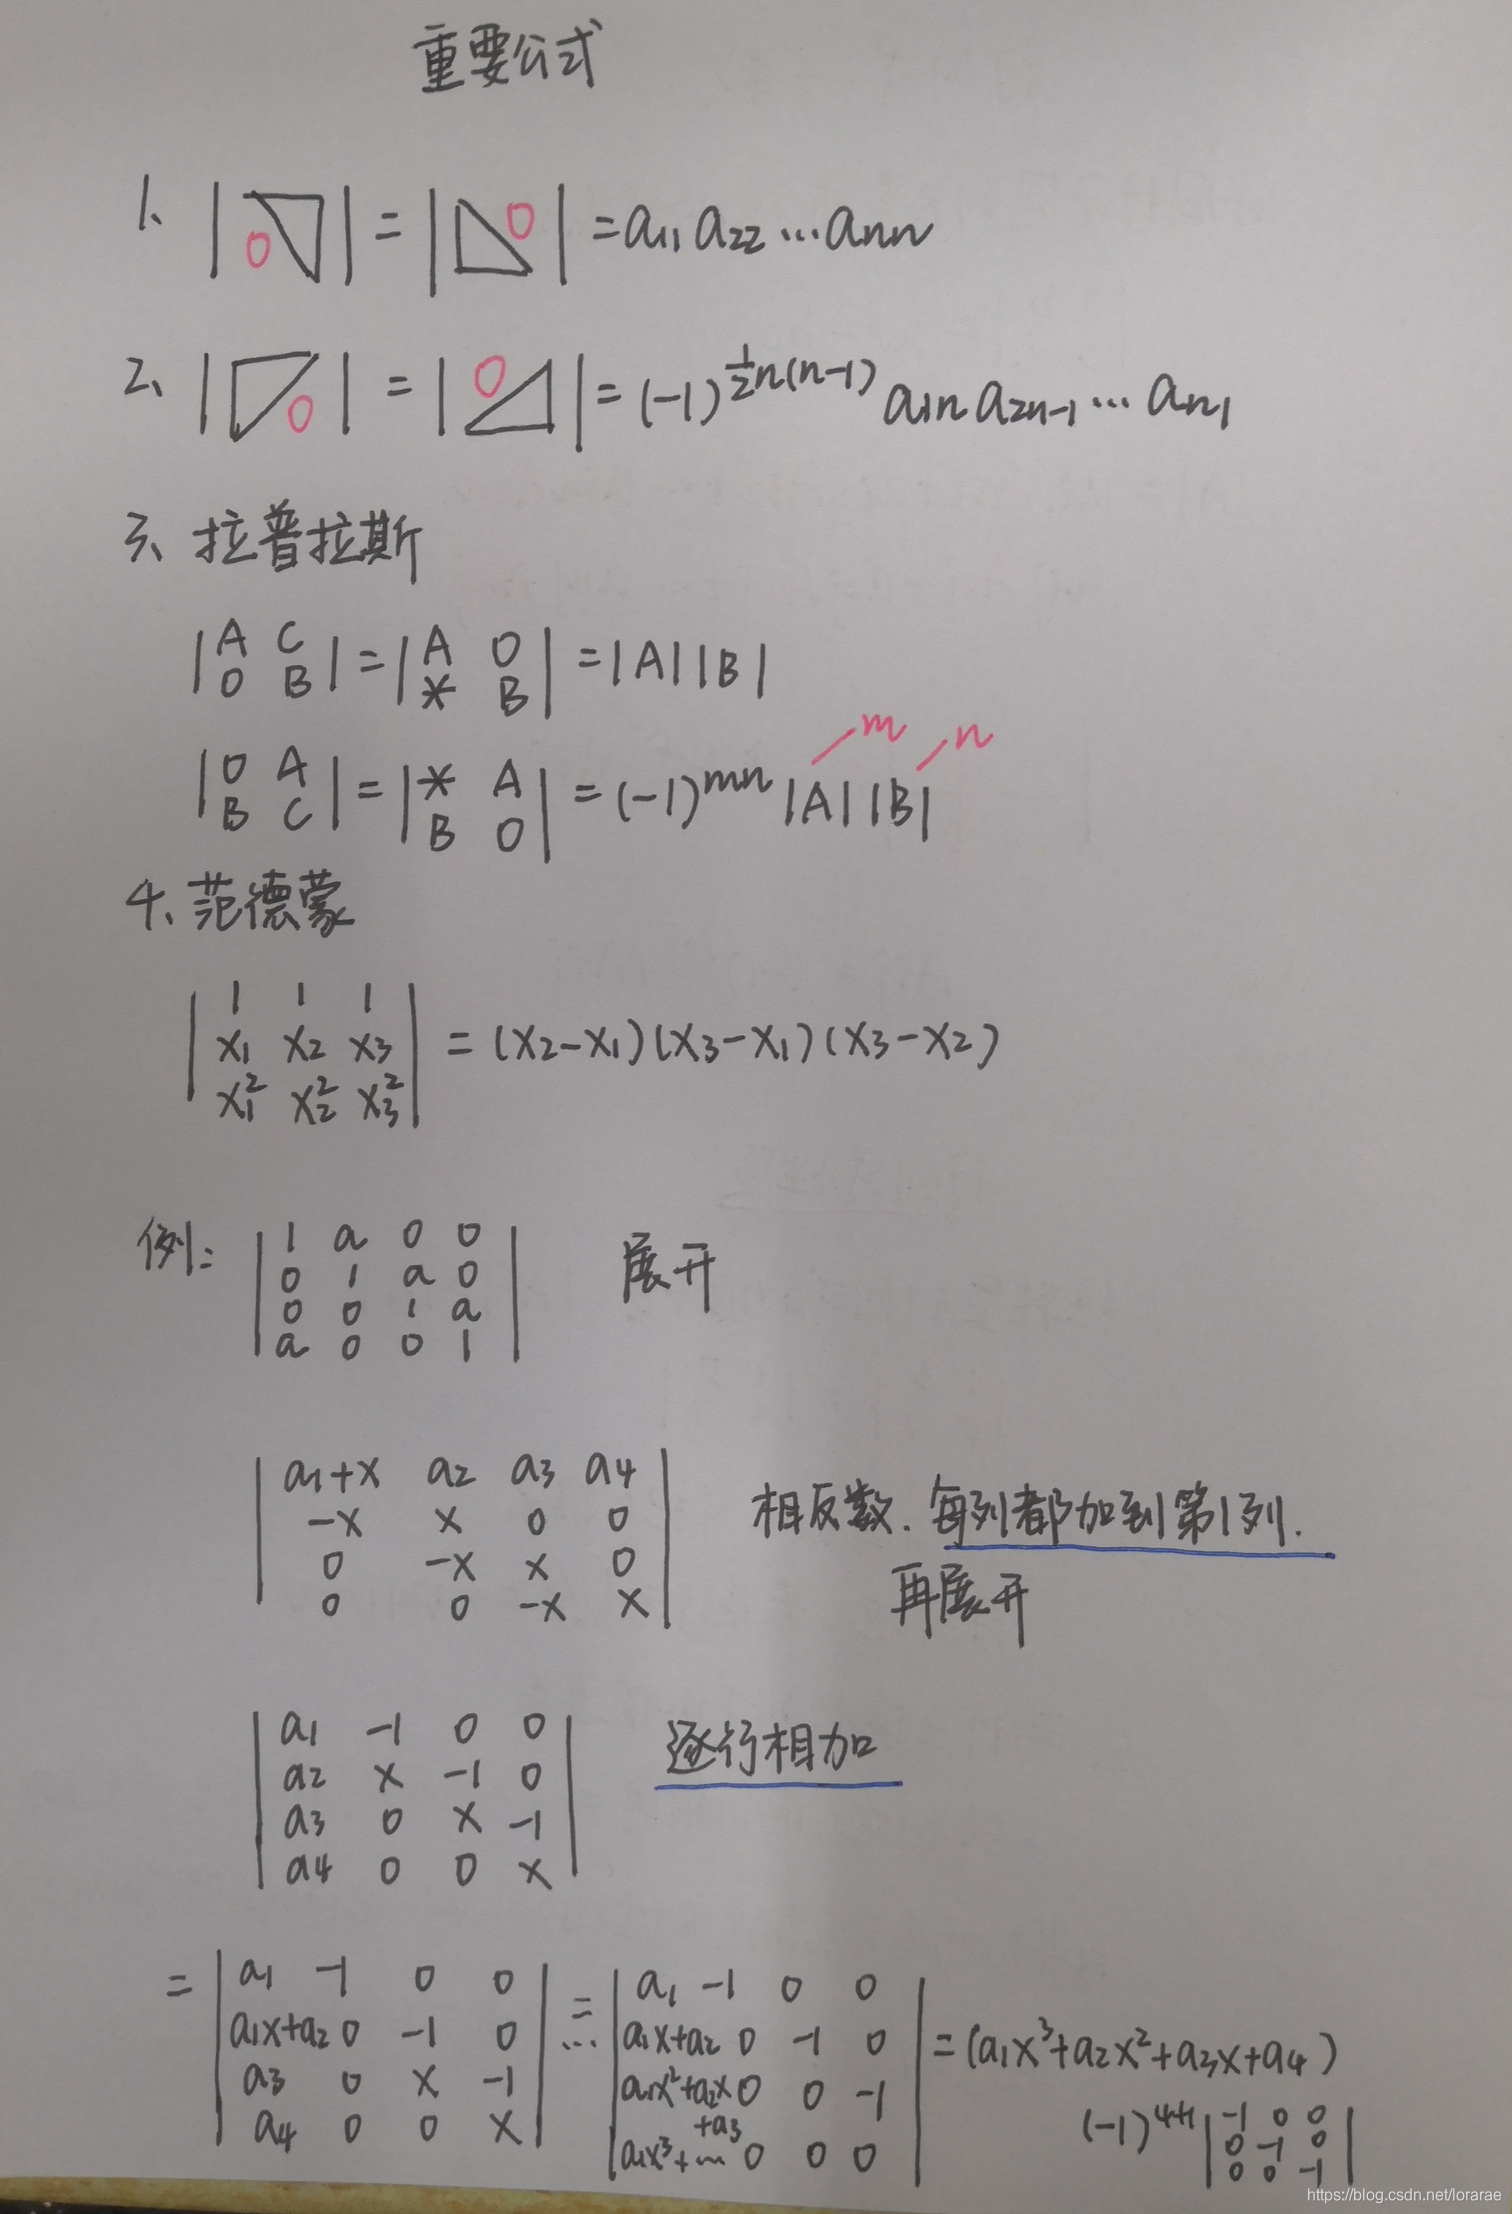 重要公式
1、| 0 | = | 0 | = a₁₁ a₂₂ … aₙₙ
2、| 0 | = | 0 | = (-1)^{½n(n-1)} a₁ₙ a₂ₙ₋₁ … aₙ₁
3、拉普拉斯
| A C ; 0 B | = | A 0 ; * B | = |A||B|
m n
| 0 A ; B C | = | * A ; B 0 | = (-1)^{mn} |A||B|
4、范德蒙
| 1 1 1 |
| x₁ x₂ x₃ | = (x₂-x₁)(x₃-x₁)(x₃-x₂)
| x₁² x₂² x₃² |
例: | 1 a 0 0 | 展开
| 0 1 a 0 |
| 0 0 1 a |
| a 0 0 1 |
| a₁+x a₂ a₃ a₄ |
| -x x 0 0 | 相反数. 每列都加到第1列.
| 0 -x x 0 | 再展开
| 0 0 -x x |
| a₁ -1 0 0 | 逐行相加
| a₂ x -1 0 |
| a₃ 0 x -1 |
| a₄ 0 0 x |
= | a₁ -1 0 0 ; a₁x+a₂ 0 -1 0 ; a₃ 0 x -1 ; a₄ 0 0 x | = … | a₁ -1 0 0 ; a₁x+a₂ 0 -1 0 ; a₁x²+a₂x+a₃ 0 0 -1 ; a₁x³+… 0 0 0 | = (a₁x³+a₂x²+a₃x+a₄)
(-1)^{4+1} | -1 0 0 ; 0 -1 0 ; 0 0 -1 |
https://blog.csdn.net/lorarae